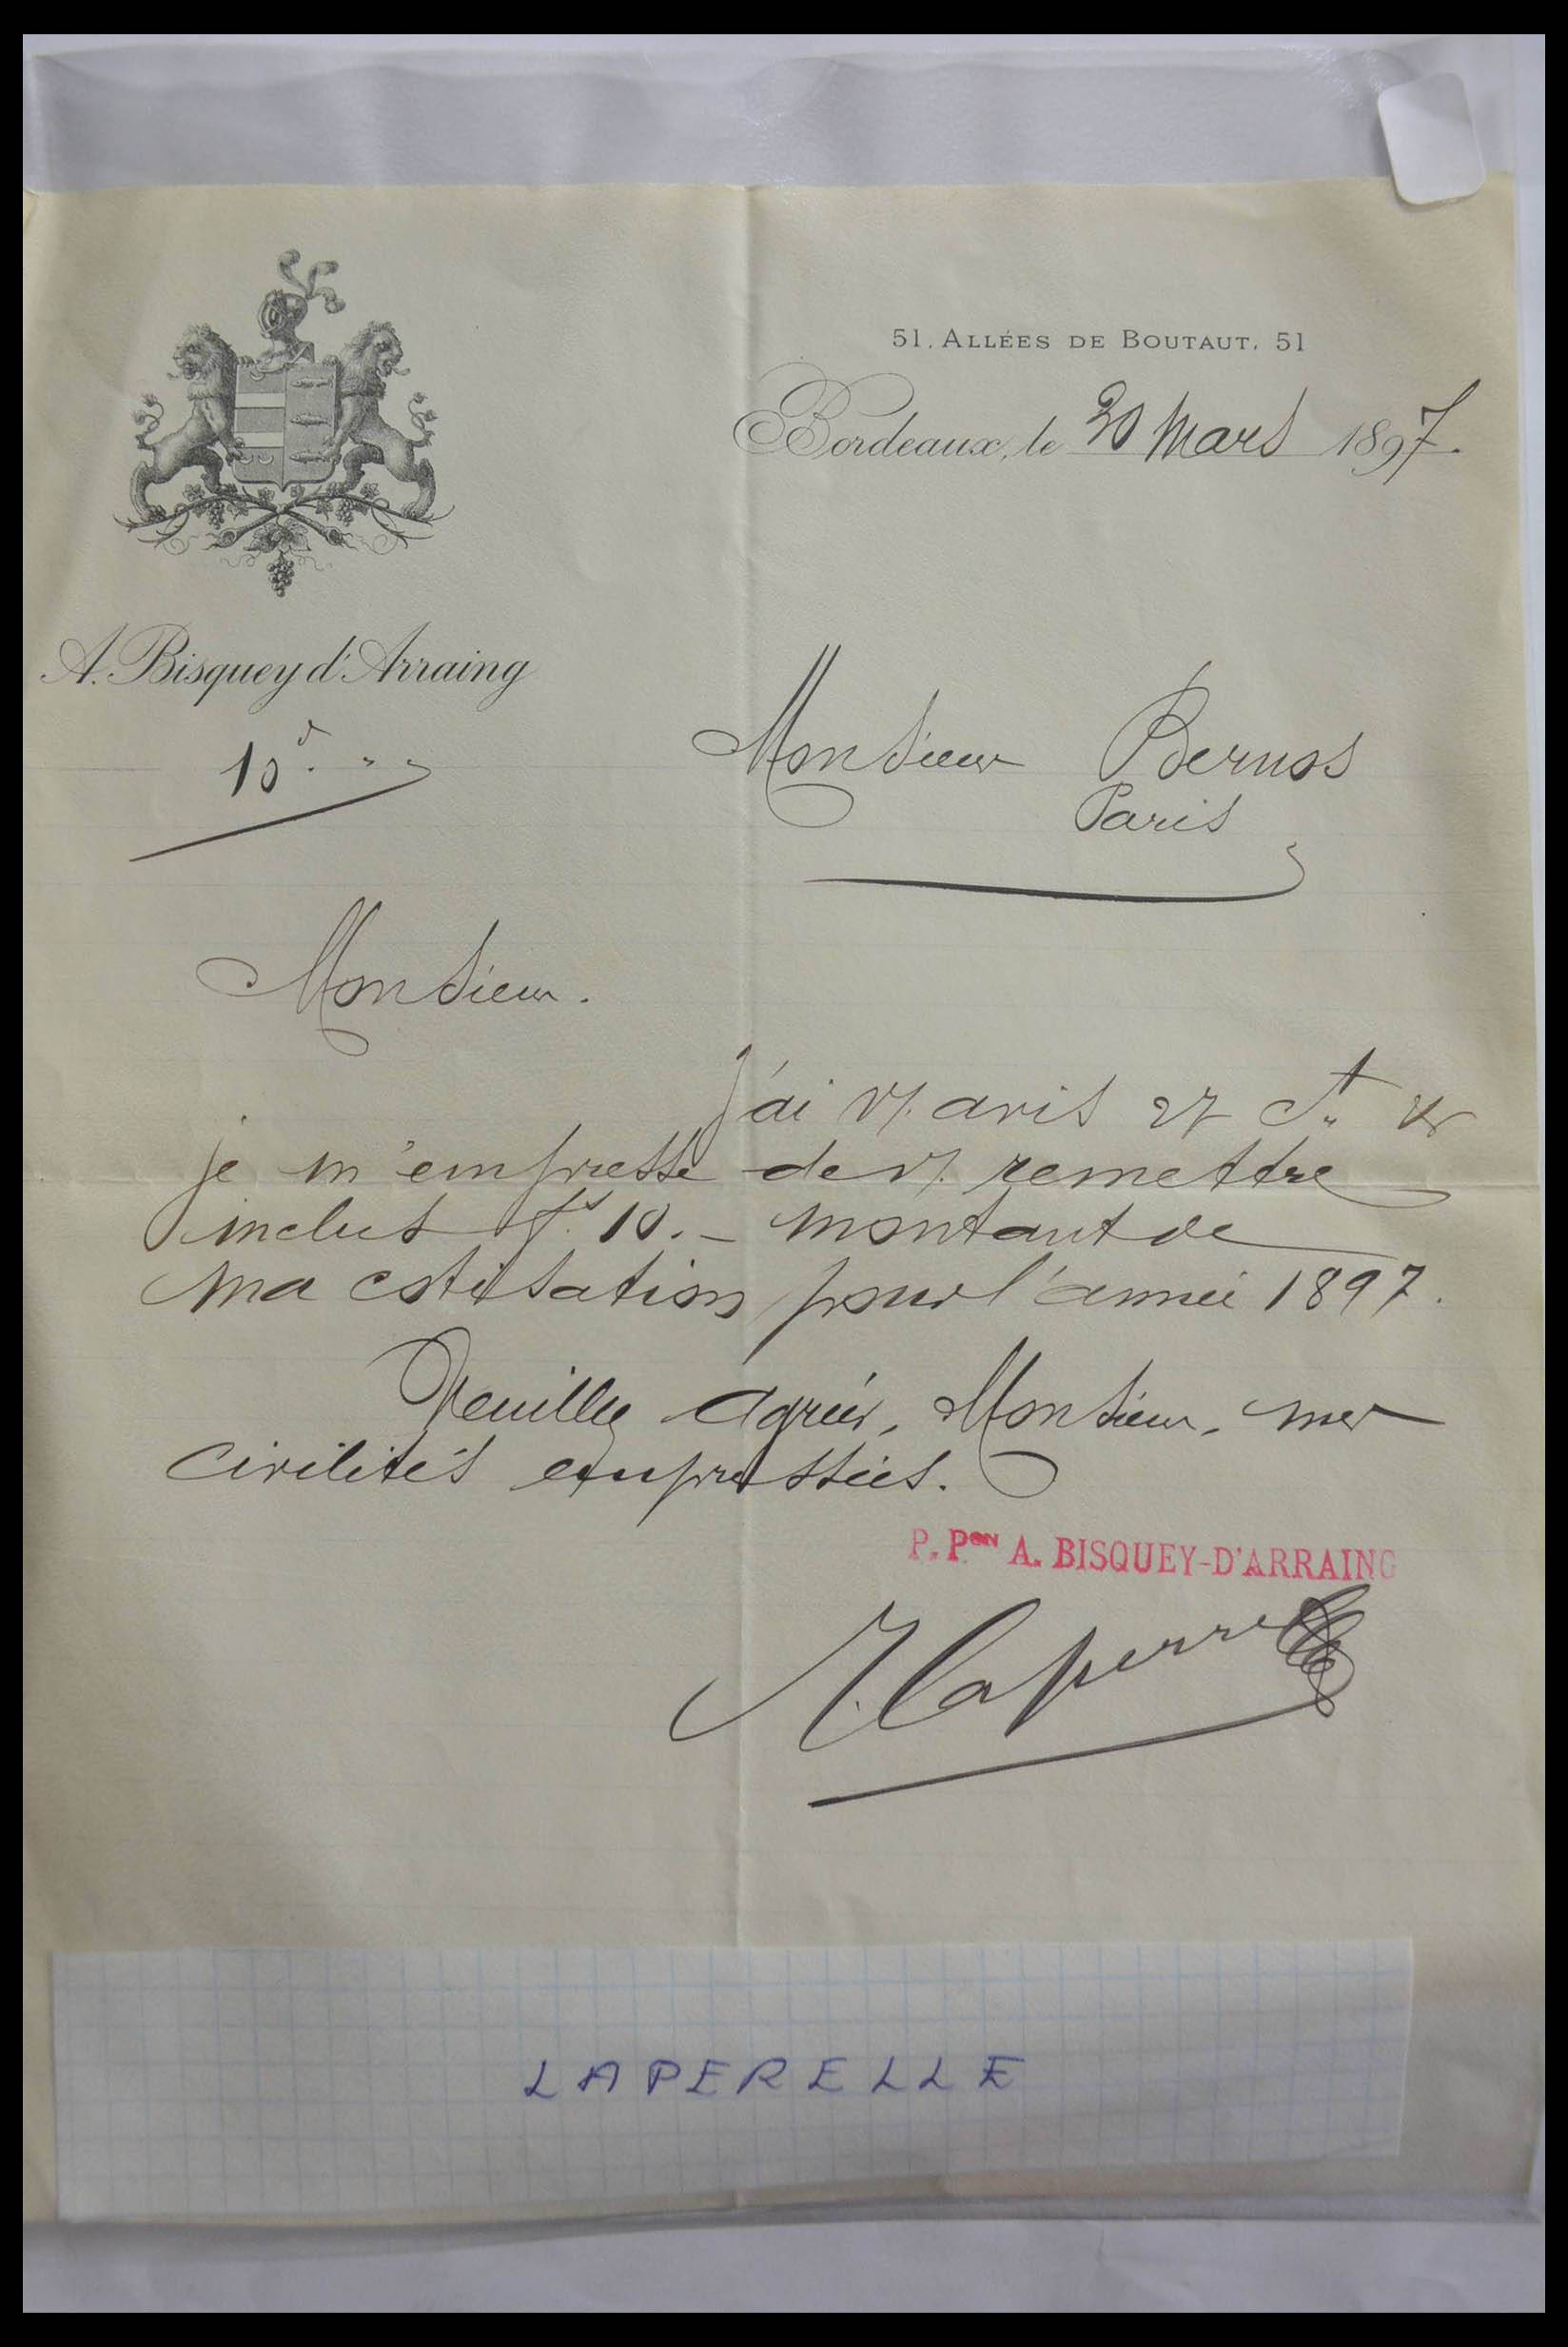 51. ALLÉES DE BOUTAUT. 51
Bordeaux, le 30 Mars 1897.
A. Bisquey d'Arraing
10
Monsieur Bernos
Paris
Monsieur.
J'ai V/. avis 27 Ct &
je m'empresse de V/. remettre
inclus fs 10.- montant de
ma cotisation pour l'année 1897.
Veuillez agréer, Monsieur, mes
civilités empressées.
P. Pon A. BISQUEY-D'ARRAING
Laperrelle
LAPERELLE